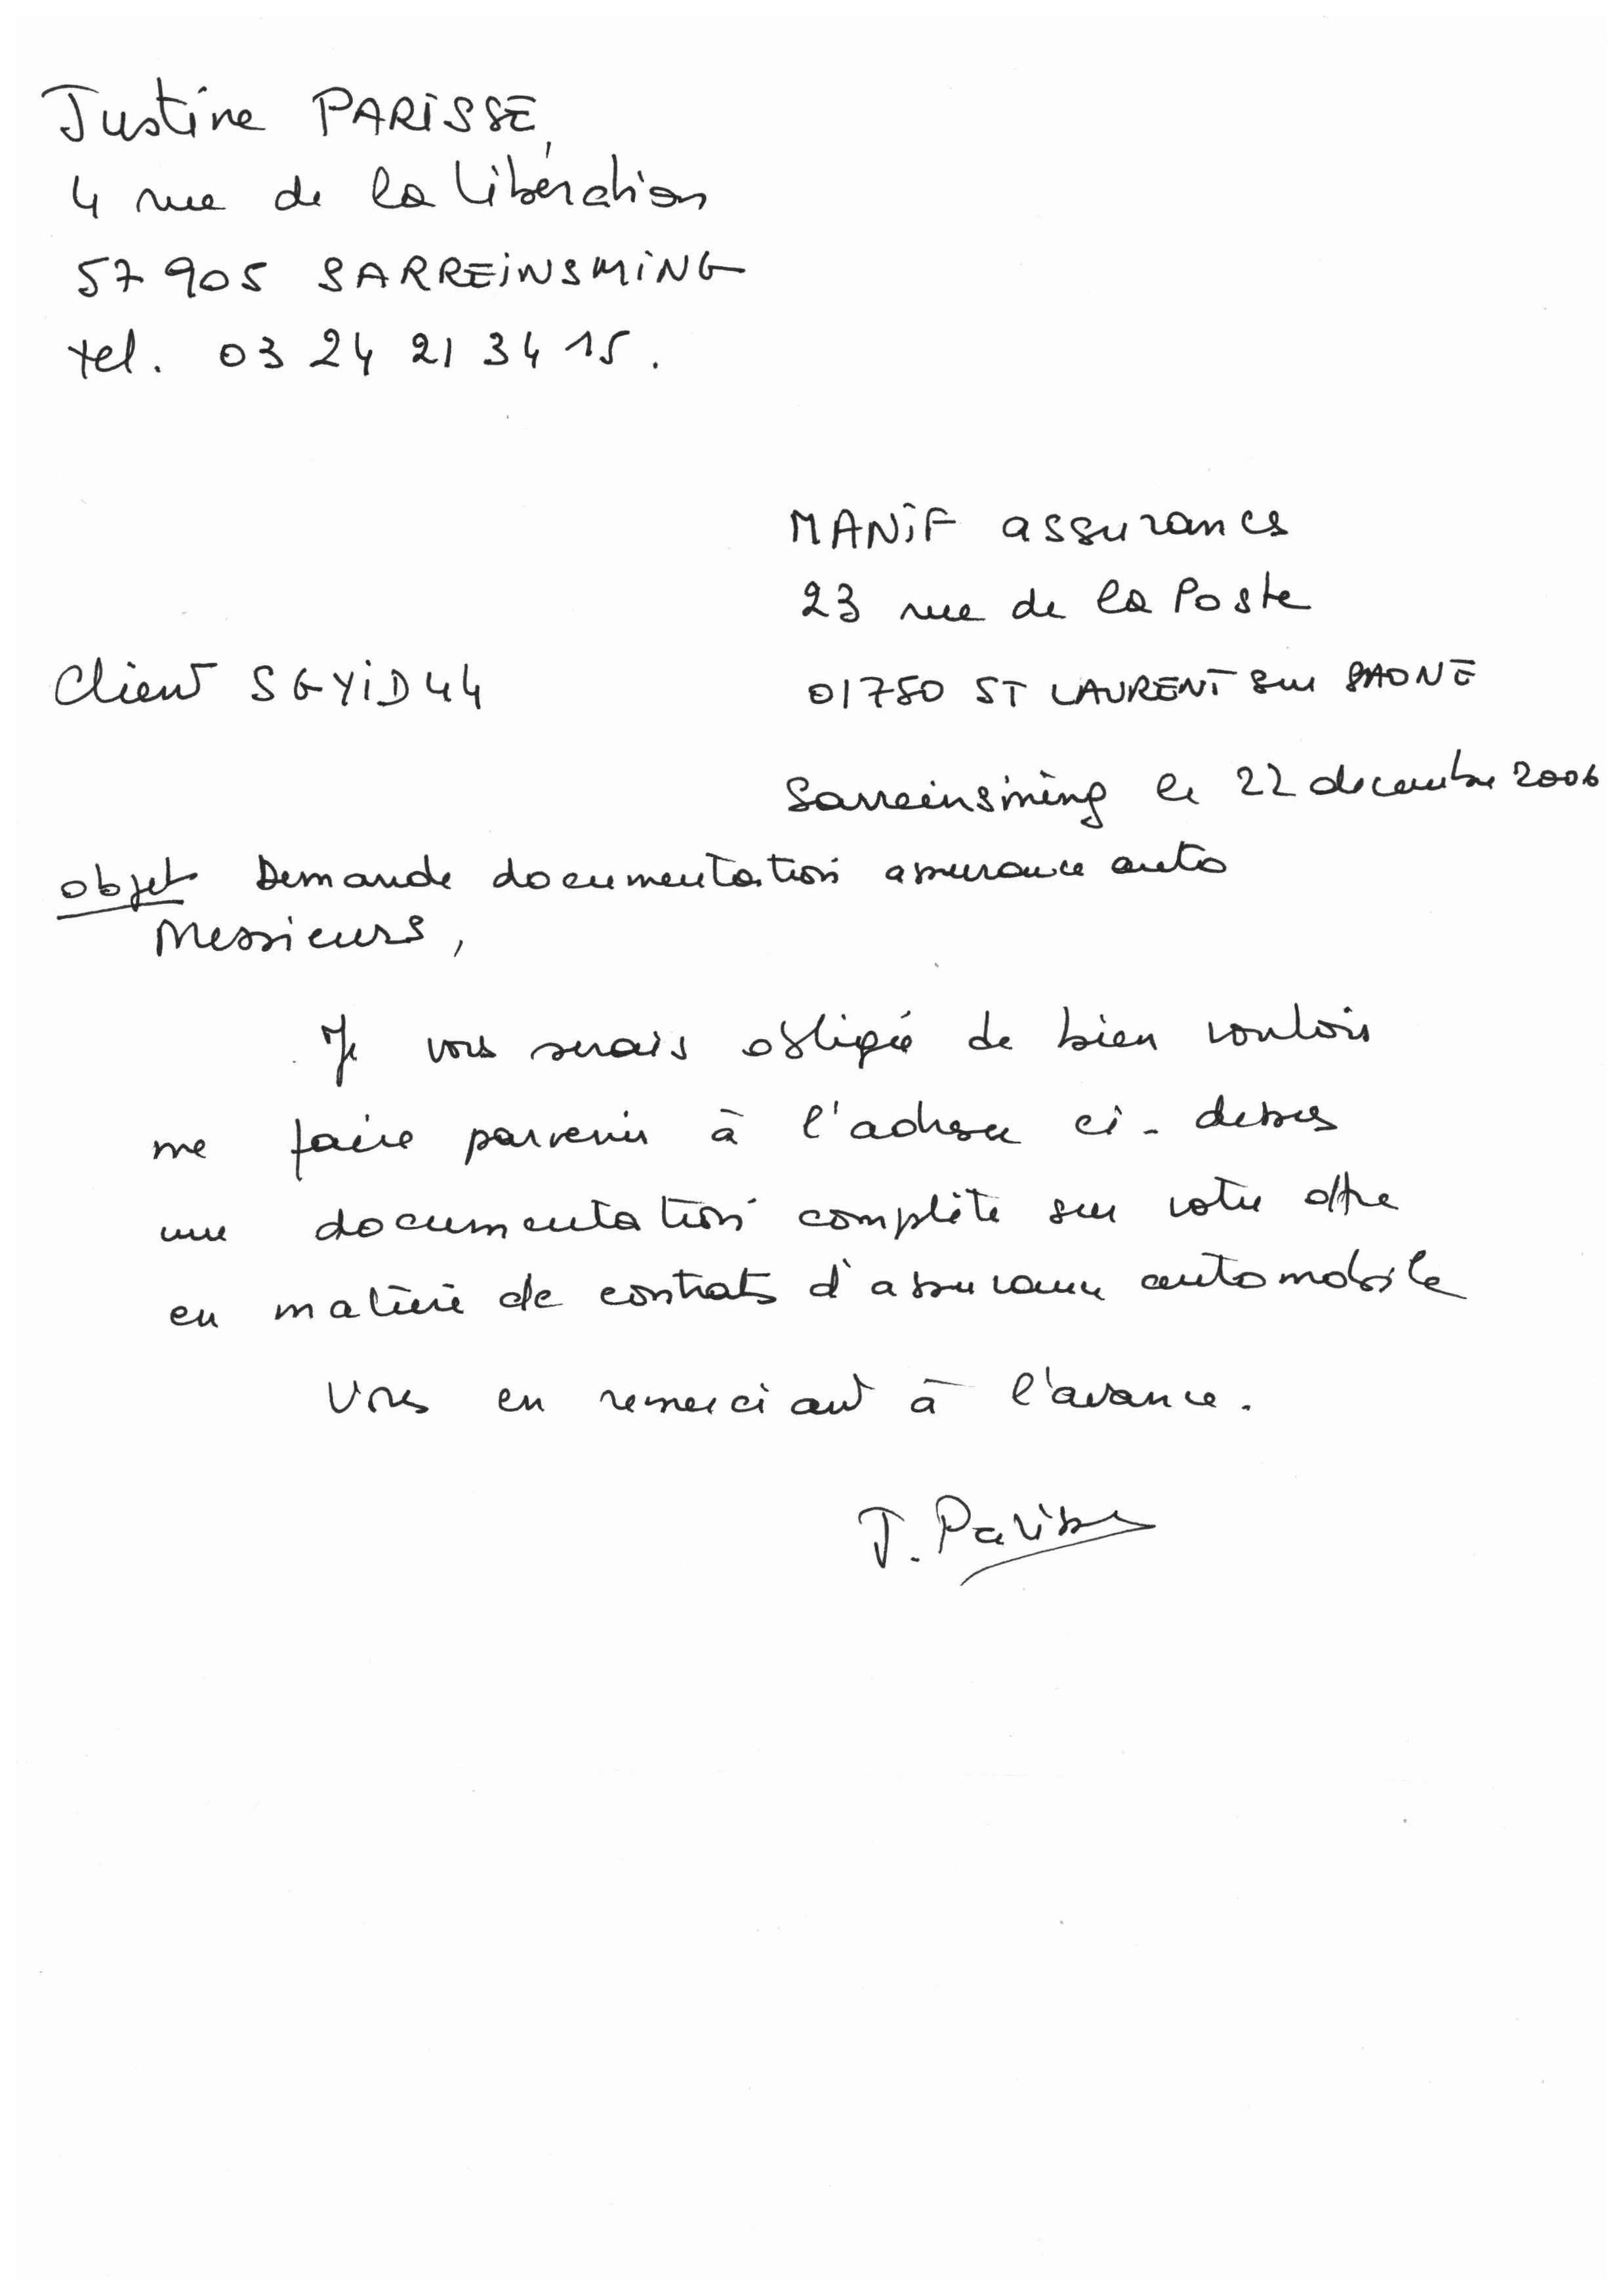 Justine PARISSE
4 rue de la Libération
57905 SARREINSMING
tel. 03 24 21 34 15.
MANIF assurances
23 rue de la Poste
Client SGYID44
01750 ST LAURENT sur SAONE
Sarreinsming le 22 decembre 2006
objet Demande documentation assurance auto
Messieurs,
Je vous serais obligée de bien vouloir
me faire parvenir à l'adresse ci-dessus
une documentation complète sur votre offre
en matière de contrats d'assurance automobile
Vous en remerciant à l'avance.
J. Parisse